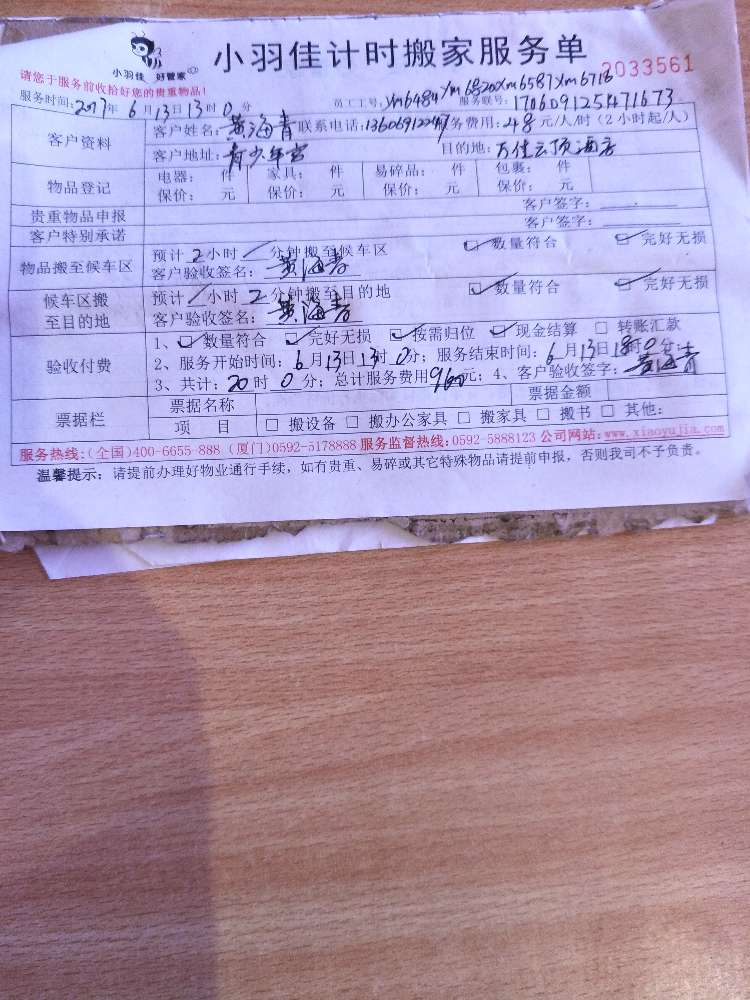 小羽佳 好管家
小羽佳计时搬家服务单
2033561
请您于服务前收拾好您的贵重物品!
服务时间: 2017年 6月13日13时0分 员工工号: Ym6484 Ym6820 Xm6587 Xm6716 服务联号: 170609125471673
客户资料
客户姓名: 黄海青 联系电话: 服务费用: 48 元/人/时 (2小时起/人)
客户地址: 青少年宫 目的地: 万佳云顶酒店
物品登记
电器: 件 家具: 件 易碎品: 件 包裹: 件
保价: 元 保价: 元 保价: 元 保价: 元
贵重物品申报 客户签字:
客户特别承诺 客户签字:
物品搬至候车区
预计 2 小时 / 分钟搬至候车区 ☑ 数量符合 ☑ 完好无损
客户验收签名: 黄海青
候车区搬至目的地
预计 / 小时 2 分钟搬至目的地 ☑ 数量符合 ☑ 完好无损
客户验收签名: 黄海青
验收付费
1、☑ 数量符合 ☑ 完好无损 ☑ 按需归位 ☑ 现金结算 □ 转账汇款
2、服务开始时间: 6月13日13时0分; 服务结束时间: 6月13日18时0分;
3、共计: 20时 0分; 总计服务费用960元; 4、客户验收签字: 黄海青
票据栏
票据名称 票据金额
项 目 □ 搬设备 □ 搬办公家具 □ 搬家具 □ 搬书 □ 其他:
服务热线: (全国)400-6655-888 (厦门)0592-5178888 服务监督热线: 0592-5888123 公司网站: www.xiaoyujia.com
温馨提示: 请提前办理好物业通行手续, 如有贵重、易碎或其它特殊物品请提前申报, 否则我司不予负责。